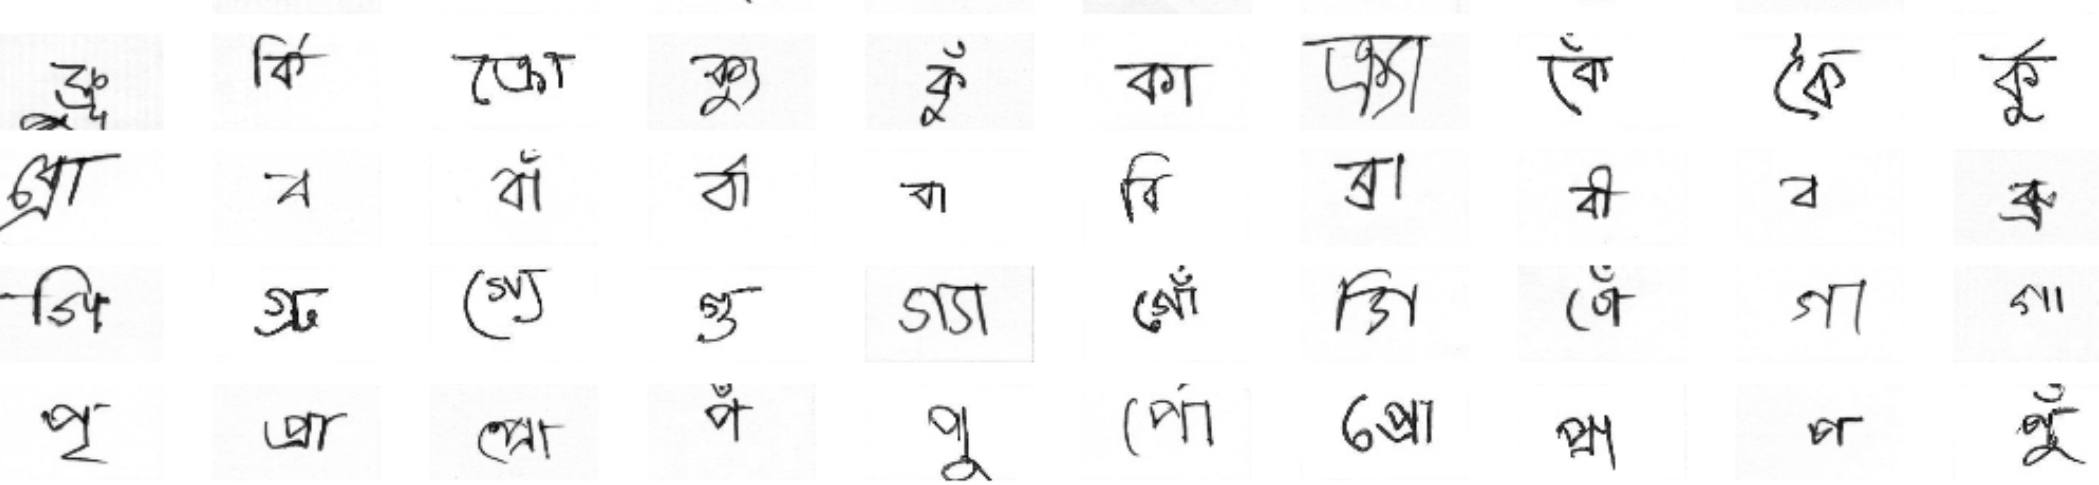 র্কি ক্রো ক্যু কুঁ কা ক্র্যা কেঁ র্কৈ র্কু
ব্রো ব বাঁ র্বা বা বি ব্রা বী ব ব্রু
গ্রি গ্রু গ্যে গু গ্যা গোঁ গ্রি গেঁ গা গা
পৃ প্রা প্রো পঁ পু র্পো প্রো প্রা প পুঁ